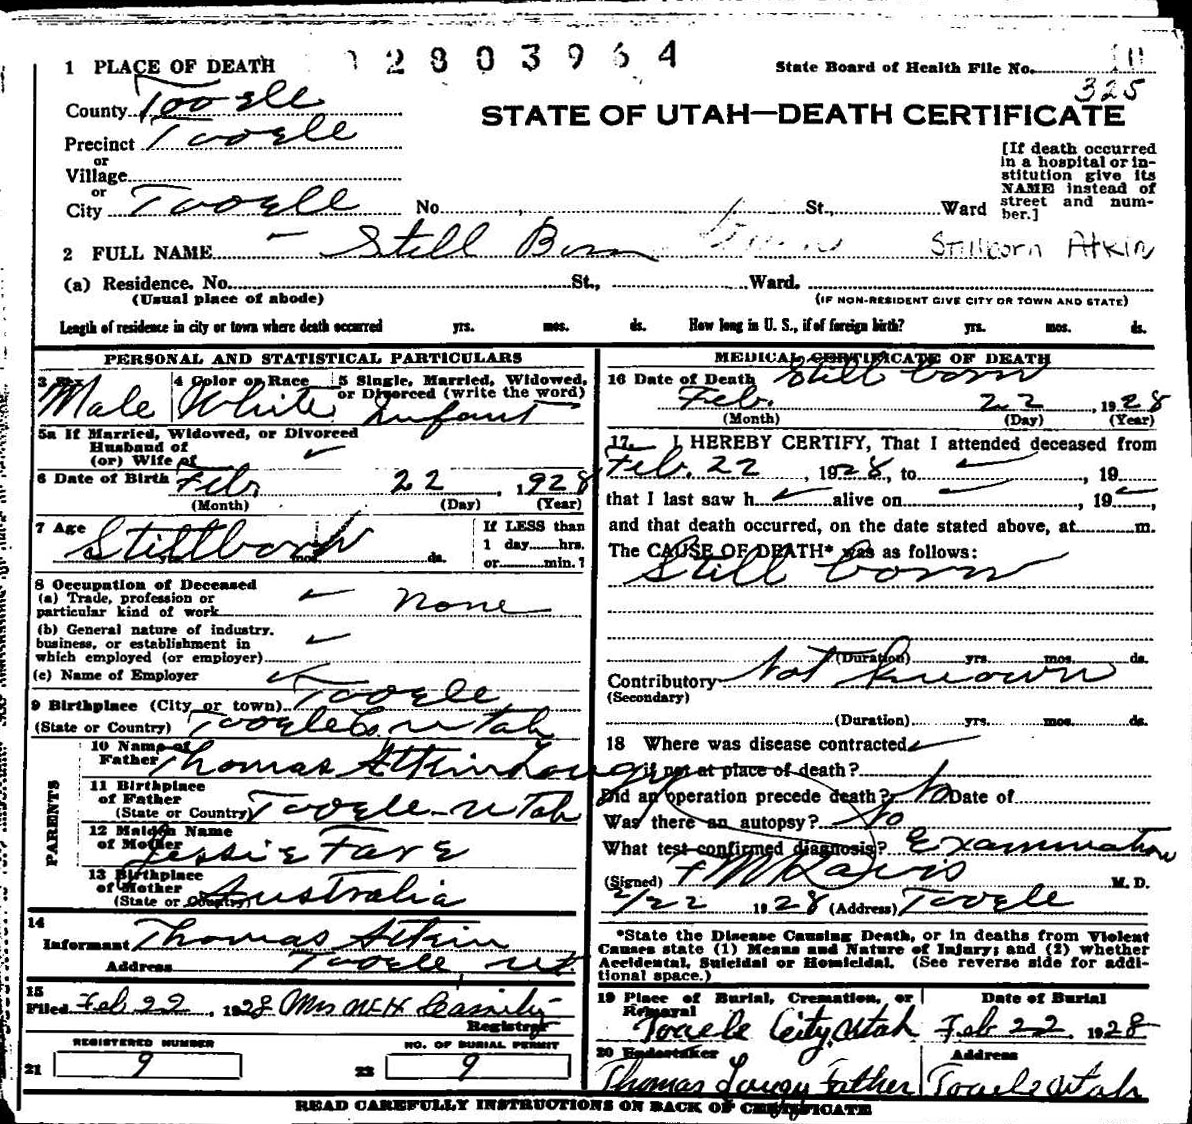 1 PLACE OF DEATH
2803964
State Board of Health File No.
325
County Tooele
STATE OF UTAH—DEATH CERTIFICATE
Precinct Tooele
or
Village
or
City Tooele No. St., Ward
[If death occurred
in a hospital or in-
stitution give its
NAME instead of
street and num-
ber.]
2 FULL NAME Still Born Stillborn Atkin
(a) Residence. No. St., Ward.
(Usual place of abode)
(IF NON-RESIDENT GIVE CITY OR TOWN AND STATE)
Length of residence in city or town where death occurred yrs. mos. ds. How long in U. S., if of foreign birth? yrs. mos. ds.
PERSONAL AND STATISTICAL PARTICULARS
3 Sex
Male
4 Color or Race
White
5 Single, Married, Widowed,
or Divorced (write the word)
Infant
5a If Married, Widowed, or Divorced
Husband of
(or) Wife of
6 Date of Birth Feb. 22, 1928
(Month) (Day) (Year)
7 Age
Stillborn
yrs. mos. ds.
If LESS than
1 day hrs.
or min. ?
8 Occupation of Deceased
(a) Trade, profession or
particular kind of work none
(b) General nature of industry.
business, or establishment in
which employed (or employer)
(c) Name of Employer
9 Birthplace (City or town) Tooele
(State or Country) Tooele Co. Utah
PARENTS
10 Name of
Father Thomas Atkin
11 Birthplace
of Father
(State or Country) Tooele Utah
12 Maiden Name
of Mother Jessie
13 Birthplace
of Mother
(State or Country) Australia
14
Informant Thomas Atkin
Address Tooele, Ut.
15
Filed Feb 22, 1928 Mrs
Registrar
REGISTERED NUMBER
21 9
NO. OF BURIAL PERMIT
22 9
MEDICAL CERTIFICATE OF DEATH
16 Date of Death Still born
Feb. 22, 1928
(Month) (Day) (Year)
17. I HEREBY CERTIFY, That I attended deceased from
Feb. 22, 1928, to , 19
that I last saw h alive on , 19
and that death occurred, on the date stated above, at m.
The CAUSE OF DEATH* was as follows:
Still born
(Duration) yrs. mos. ds.
Contributory Not Known
(Secondary)
(Duration) yrs. mos. ds.
18 Where was disease contracted
if not at place of death?
Did an operation precede death? No Date of
Was there an autopsy? No
What test confirmed diagnosis? Examination
(Signed) M. D.
2/22 1928 (Address) Tooele
*State the Disease Causing Death, or in deaths from Violent
Causes state (1) Means and Nature of Injury; and (2) whether
Accidental, Suicidal or Homicidal. (See reverse side for addi-
tional space.)
19 Place of Burial, Cremation, or
Removal
Tooele City, Utah
Date of Burial
Feb 22, 1928
20 Undertaker
Thomas Father
Address
Tooele Utah
READ CAREFULLY INSTRUCTIONS ON BACK OF CERTIFICATE